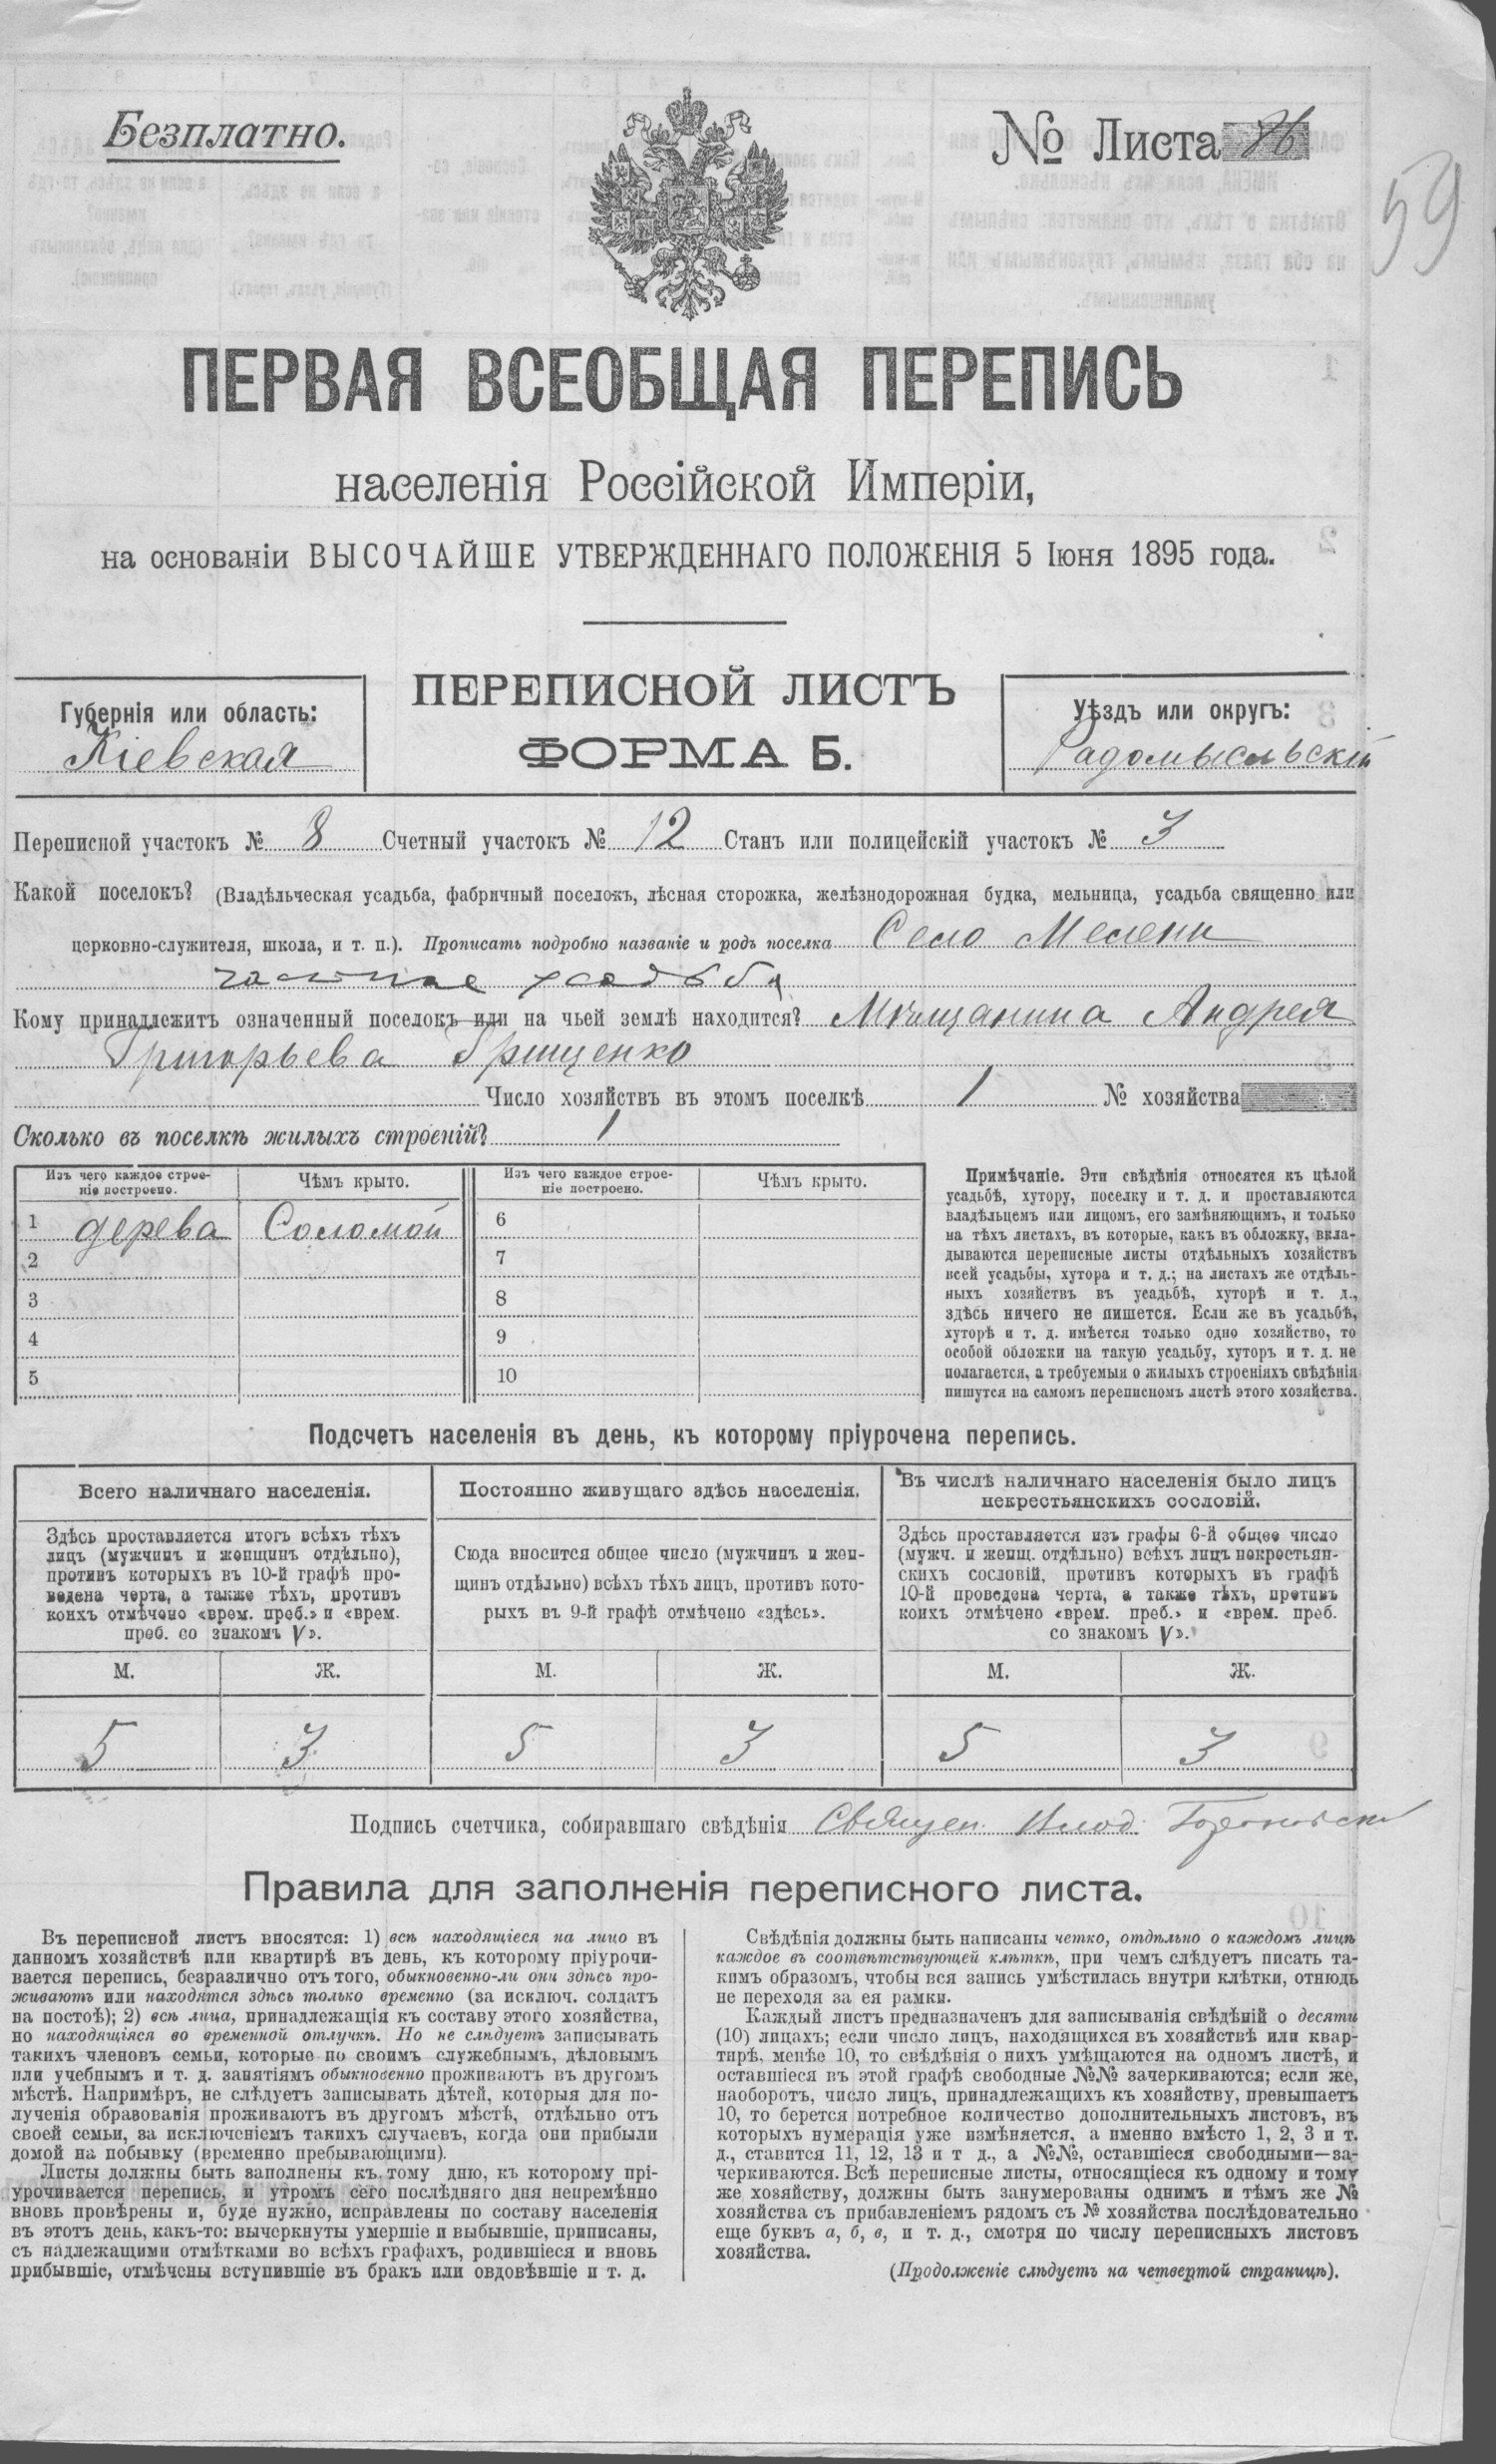 Безплатно.
№ Листа 86
59
ПЕРВАЯ ВСЕОБЩАЯ ПЕРЕПИСЬ
населенія Россійской Имперіи,
на основаніи ВЫСОЧАЙШЕ УТВЕРЖДЕННАГО ПОЛОЖЕНІЯ 5 Іюня 1895 года.
Губернія или область:
Кіевская
ПЕРЕПИСНОЙ ЛИСТЪ
ФОРМА Б.
Уѣздъ или округъ:
Радомысльскій
Переписной участокъ № 8 Счетный участокъ № 12 Станъ или полицейскій участокъ № 3
Какой поселокъ? (Владѣльческая усадьба, фабричный поселокъ, лѣсная сторожка, желѣзнодорожная будка, мельница, усадьба священно или
церковно-служителя, школа, и т. п.). Прописать подробно названіе и родъ поселка Село Мелени
усадьба
Кому принадлежитъ означенный поселокъ или на чьей землѣ находится? Мѣщанина Андрея
Григорьева Грищенко
Число хозяйствъ въ этомъ поселкѣ 1 № хозяйства
Сколько въ поселкѣ жилыхъ строеній? 1
Изъ чего каждое строе-
ніе построено.
Чѣмъ крыто.
Изъ чего каждое строе-
ніе построено.
Чѣмъ крыто.
1 дерева Соломой 6
2 7
3 8
4 9
5 10
Примѣчаніе. Эти свѣдѣнія относятся къ цѣлой
усадьбѣ, хутору, поселку и т. д. и проставляются
владѣльцемъ или лицомъ, его замѣняющимъ, и только
на тѣхъ листахъ, въ которые, какъ въ обложку, вкла-
дываются переписные листы отдѣльныхъ хозяйствъ
всей усадьбы, хутора и т. д.; на листахъ же отдѣль-
ныхъ хозяйствъ въ усадьбѣ, хуторѣ и т. д.,
здѣсь ничего не пишется. Если же въ усадьбѣ,
хуторѣ и т. д. имѣется только одно хозяйство, то
особой обложки на такую усадьбу, хуторъ и т. д. не
полагается, а требуемыя о жилыхъ строеніяхъ свѣдѣнія
пишутся на самомъ переписномъ листѣ этого хозяйства.
Подсчетъ населенія въ день, къ которому пріурочена перепись.
Всего наличнаго населенія.
Здѣсь проставляется итогъ всѣхъ тѣхъ
лицъ (мужчинъ и женщинъ отдѣльно),
противъ которыхъ въ 10-й графѣ про-
ведена черта, а также тѣхъ, противъ
коихъ отмѣчено «врем. преб.» и «врем.
преб. со знакомъ V».
М. Ж.
5 3
Постоянно живущаго здѣсь населенія.
Сюда вносится общее число (мужчинъ и жен-
щинъ отдѣльно) всѣхъ тѣхъ лицъ, противъ кото-
рыхъ въ 9-й графѣ отмѣчено «здѣсь».
М. Ж.
5 3
Въ числѣ наличнаго населенія было лицъ
некрестьянскихъ сословій.
Здѣсь проставляется изъ графы 6-й общее число
(мужч. и женщ. отдѣльно) всѣхъ лицъ некрестьян-
скихъ сословій, противъ которыхъ въ графѣ
10-й проведена черта, а также тѣхъ, противъ
коихъ отмѣчено «врем. преб.» и «врем. преб.
со знакомъ V».
М. Ж.
5 3
Подпись счетчика, собиравшаго свѣдѣнія Священ.
Правила для заполненія переписного листа.
Въ переписной листъ вносятся: 1) всѣ находящіеся на лицо въ
данномъ хозяйствѣ или квартирѣ въ день, къ которому пріурочи-
вается перепись, безразлично отъ того, обыкновенно-ли они здѣсь про-
живаютъ или находятся здѣсь только временно (за исключ. солдатъ
на постоѣ); 2) всѣ лица, принадлежащія къ составу этого хозяйства,
но находящіяся во временной отлучкѣ. Но не слѣдуетъ записывать
такихъ членовъ семьи, которые по своимъ служебнымъ, дѣловымъ
или учебнымъ и т. д. занятіямъ обыкновенно проживаютъ въ другомъ
мѣстѣ. Напримѣръ, не слѣдуетъ записывать дѣтей, которыя для по-
лученія образованія проживаютъ въ другомъ мѣстѣ, отдѣльно отъ
своей семьи, за исключеніемъ такихъ случаевъ, когда они прибыли
домой на побывку (временно пребывающими).
Листы должны быть заполнены къ тому дню, къ которому прі-
урочивается перепись, и утромъ сего послѣдняго дня непремѣнно
вновь провѣрены и, буде нужно, исправлены по составу населенія
въ этотъ день, какъ-то: вычеркнуты умершіе и выбывшіе, приписаны,
съ надлежащими отмѣтками во всѣхъ графахъ, родившіеся и вновь
прибывшіе, отмѣчены вступившіе въ бракъ или овдовѣвшіе и т. д.
Свѣдѣнія должны быть написаны четко, отдѣльно о каждомъ лицѣ
каждое въ соотвѣтствующей клѣткѣ, при чемъ слѣдуетъ писать та-
кимъ образомъ, чтобы вся запись умѣстилась внутри клѣтки, отнюдь
не переходя за ея рамки.
Каждый листъ предназначенъ для записыванія свѣдѣній о десяти
(10) лицахъ; если число лицъ, находящихся въ хозяйствѣ или квар-
тирѣ, менѣе 10, то свѣдѣнія о нихъ умѣщаются на одномъ листѣ, и
оставшіеся въ этой графѣ свободные №№ зачеркиваются; если же,
наоборотъ, число лицъ, принадлежащихъ къ хозяйству, превышаетъ
10, то берется потребное количество дополнительныхъ листовъ, въ
которыхъ нумерація уже измѣняется, а именно вмѣсто 1, 2, 3 и т.
д., ставится 11, 12, 13 и т д., а №№, оставшіеся свободными—за-
черкиваются. Всѣ переписные листы, относящіеся къ одному и тому
же хозяйству, должны быть занумерованы однимъ и тѣмъ же №
хозяйства съ прибавленіемъ рядомъ съ № хозяйства послѣдовательно
еще буквъ а, б, в, и т. д., смотря по числу переписныхъ листовъ
хозяйства.
(Продолженіе слѣдуетъ на четвертой страницѣ).